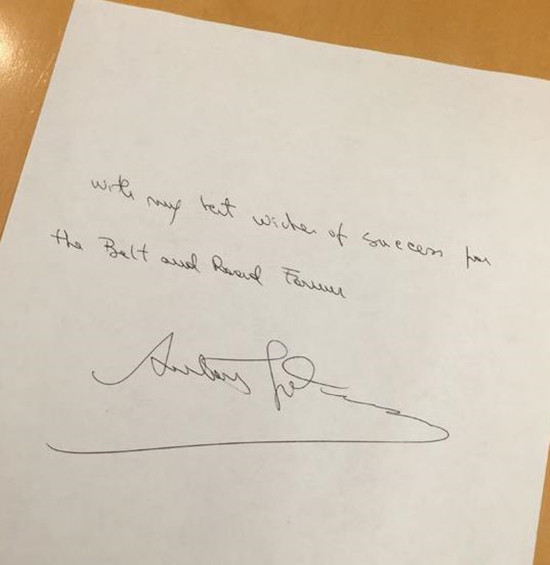 with my best wishes of success for
the Belt and Road Forum